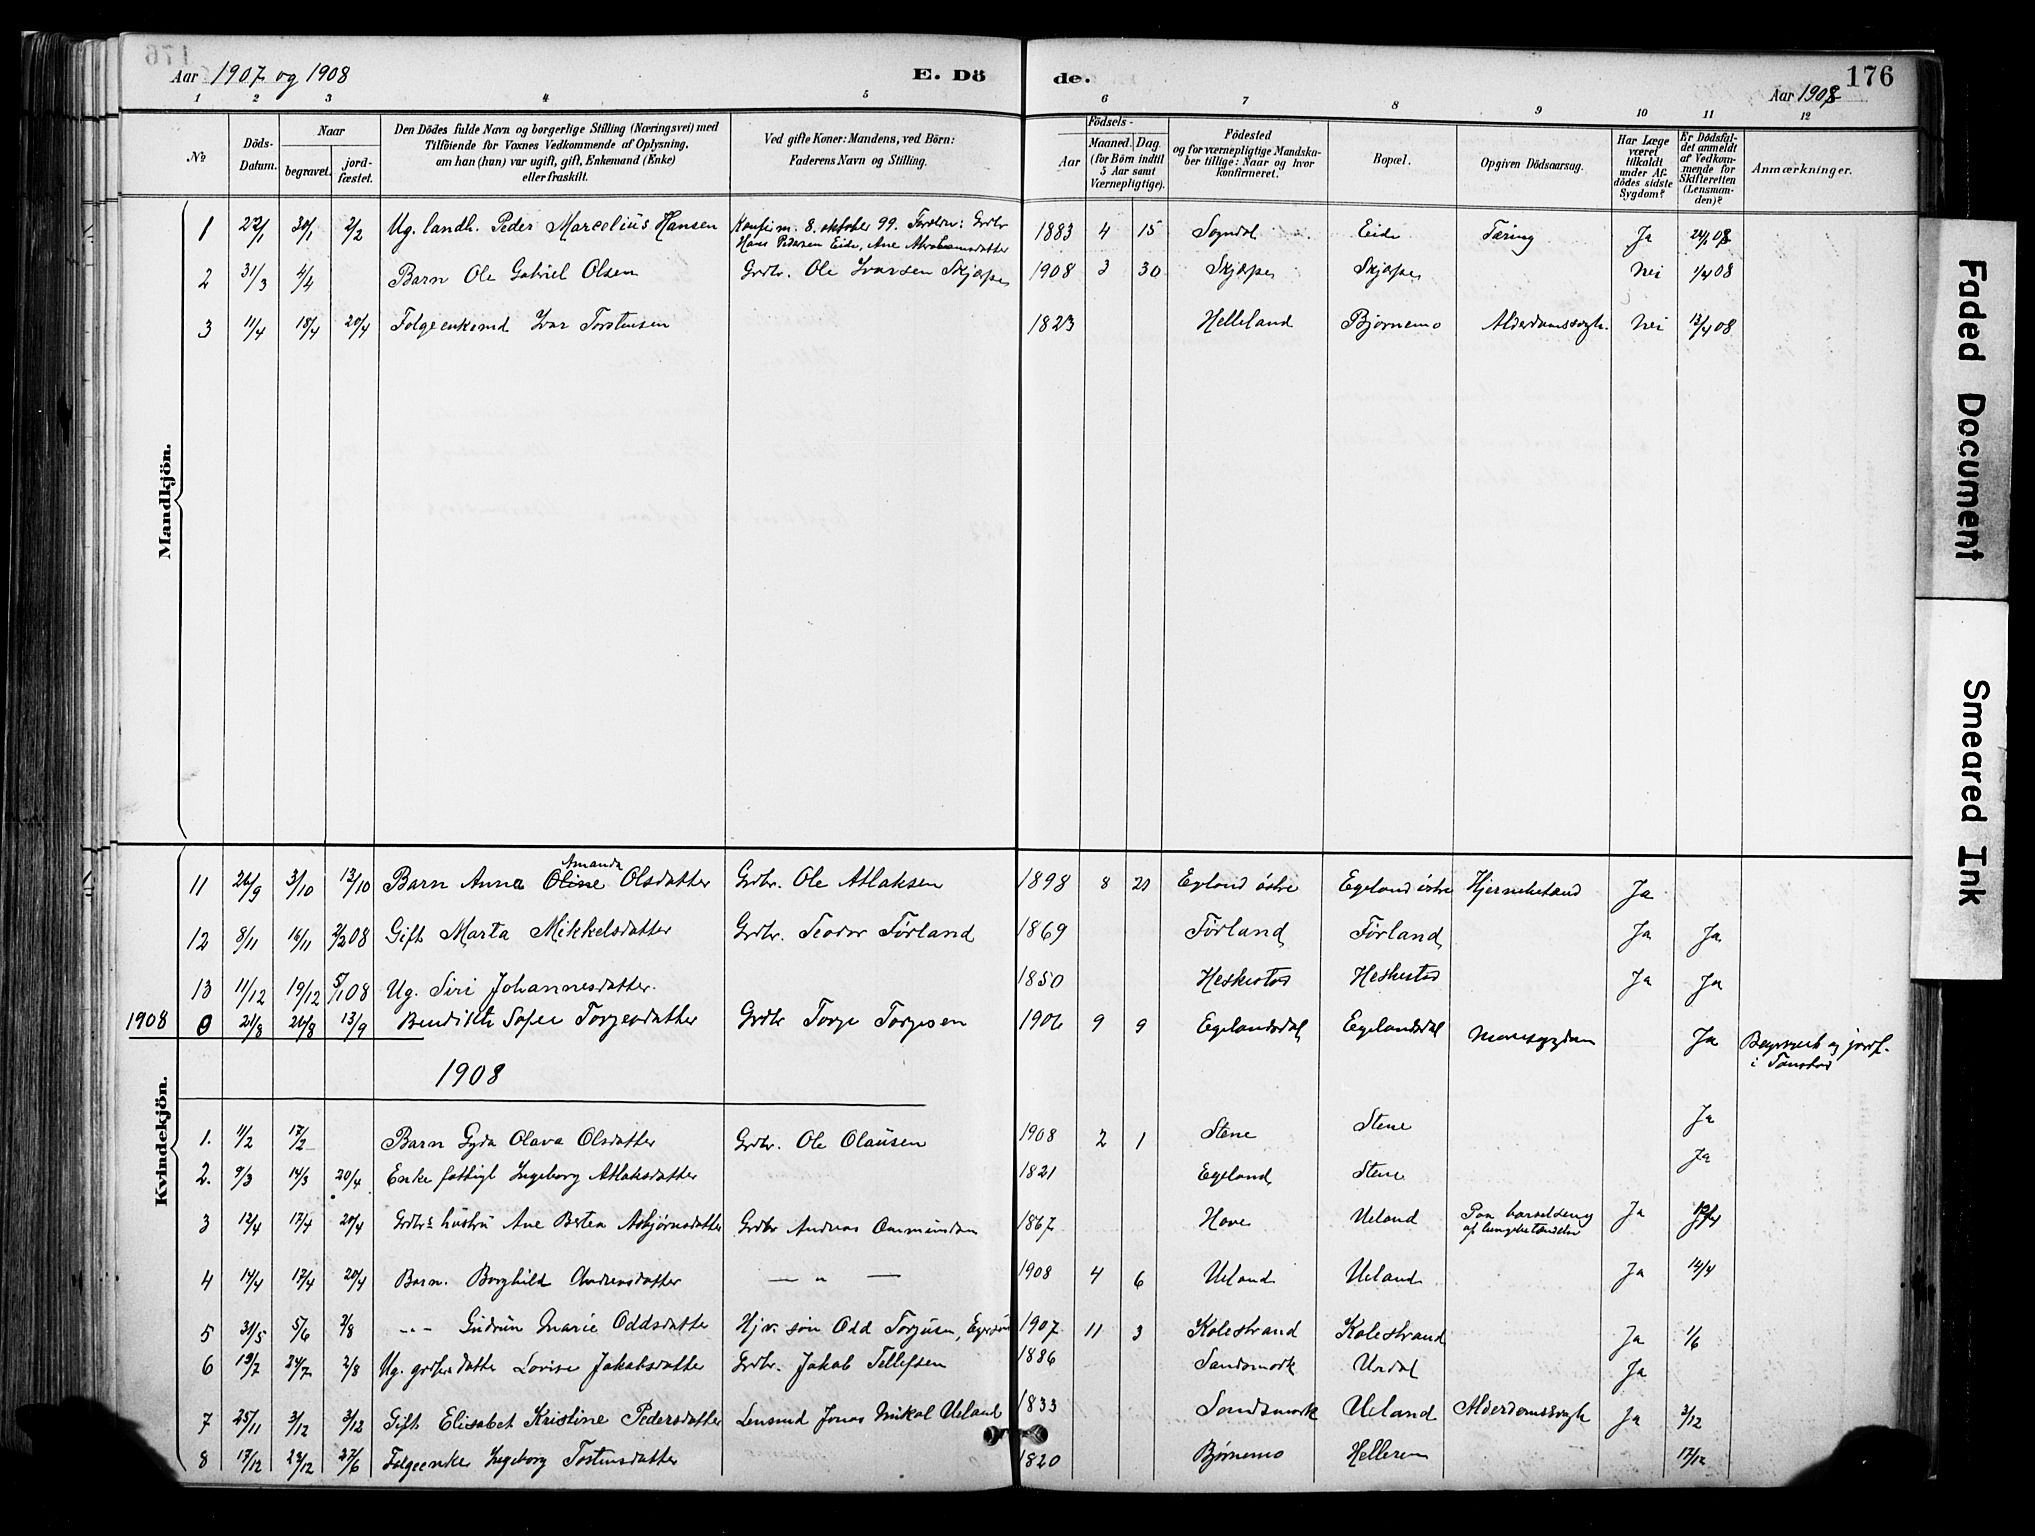 Aar 1907 og 1908
E. Dö
de.
Aar 1908
176
1 2 3 4 5 6 7 8 9 10 11 12
No
Döds-Datum.
Naar
begravet.
jord-fæstet.
Den Dödes fulde Navn og borgerlige Stilling (Næringsvei) med
Tilföiende for Voxnes Vedkommende af Oplysning,
om han (hun) var ugift, gift, Enkemand (Enke)
eller fraskilt.
Ved gifte Koner: Mandens, ved Börn:
Faderens Navn og Stilling.
Födsels-
Aar
Maaned. Dag.
(for Börn indtil
5 Aar samt
Værnepligtige).
Födested
og for værnepligtige Mandska-
ber tillige: Naar og hvor
konfirmeret.
Bopæl.
Opgiven Dödsaarsag.
Har Læge
været
tilkaldt
under Af-
dödes sidste
Sygdom?
Er Dödsfal-
det anmeldt
af Vedkom-
mende for
Skifteretten
(Lensman-
den)?
Anmærkninger.
Mandkjön.
1 22/1 30/1 2/2 Ug. landh. Peder Marcelius Hansen Konfirm. 8. oktober 99. Forældre: Grdbr Hans Pedersen Eide, Ane Abrahamsdatter 1883 4 15 Sogndal Eide Tæring Ja 24/1 08
2 31/3 4/4 Barn Ole Gabriel Olsen Grdbr. Ole Ivarsen Skjæpe 1908 3 30 Skjæpe Skjæpe Nei 1/4 08
3 11/4 18/4 20/4 Folgeenkemd Ivar Torstensen 1823 Helleland Bjørnemo Alderdomssvagh. Nei 13/4 08
Kvindekjön.
11 26/9 3/10 13/10 Barn Anna Oline Amanda Olsdatter Grdbr. Ole Atlaksen 1898 8 21 Egeland østre Egeland østre Hjernebetænd Ja
12 8/11 16/11 2/2 08 Gift Marta Mikkelsdatter Grdbr. Teodor Førland 1869 Førland Førland Ja Ja
13 11/12 19/12 5/1 08 Ug. Siri Johannesdatter. 1850 Heskestad Heskestad Ja Ja
1908 0 21/8 26/8 13/9 Bendikte Sofie Torjersdatter Grdbr Torje Torjesen 1906 9 9 Egelandsdal Egelandsdal Mavesygdom Ja Begravet og jordf. i Tonstad
1908
1. 11/2 17/2 Barn Gyda Olava Olsdatter Grdbr. Ole Olausen 1908 2 1 Stene Stene Ja
2. 9/3 14/3 20/4 Enke fattigl Ingeborg Atlaksdatter 1821 Egeland Stene Ja
3 12/4 17/4 20/4 Grdbrs hustru Ane Bertea Asbjørnsdatter Grdbr Andreas Ommundsen 1867 Hove Ueland Paa barselseng af lungebetændelse Ja
4 14/4 17/4 20/4 Barn. Borghild Andreasdatter — " — 1908 4 6 Ueland Ueland Ja 14/4
5 31/5 5/6 2/8 -"- Gudrun Marie Oddsdatter Hjv. søn Odd Torjusen, 1907 11 3 Kolestrand Kolestrand Ja 1/6
6 19/7 24/7 2/8 Ug. grdbrsdatter Lovise Jakobsdatter Grdbr. Jakob Tellefsen 1886 Sandsmork Urdal Ja
7 25/11 3/12 3/12 Gift Elisabet Kristine Pedersdatter Lensmd Jonas Mikal Ueland 1833 Sandsmork Ueland Alderdomssvagh Ja 3/12
8 17/12 22/12 27/6 Folgeenke Ingeborg Tostensdatter 1820 Bjørnemo Helleren 17/12
Faded Document
Smeared Ink